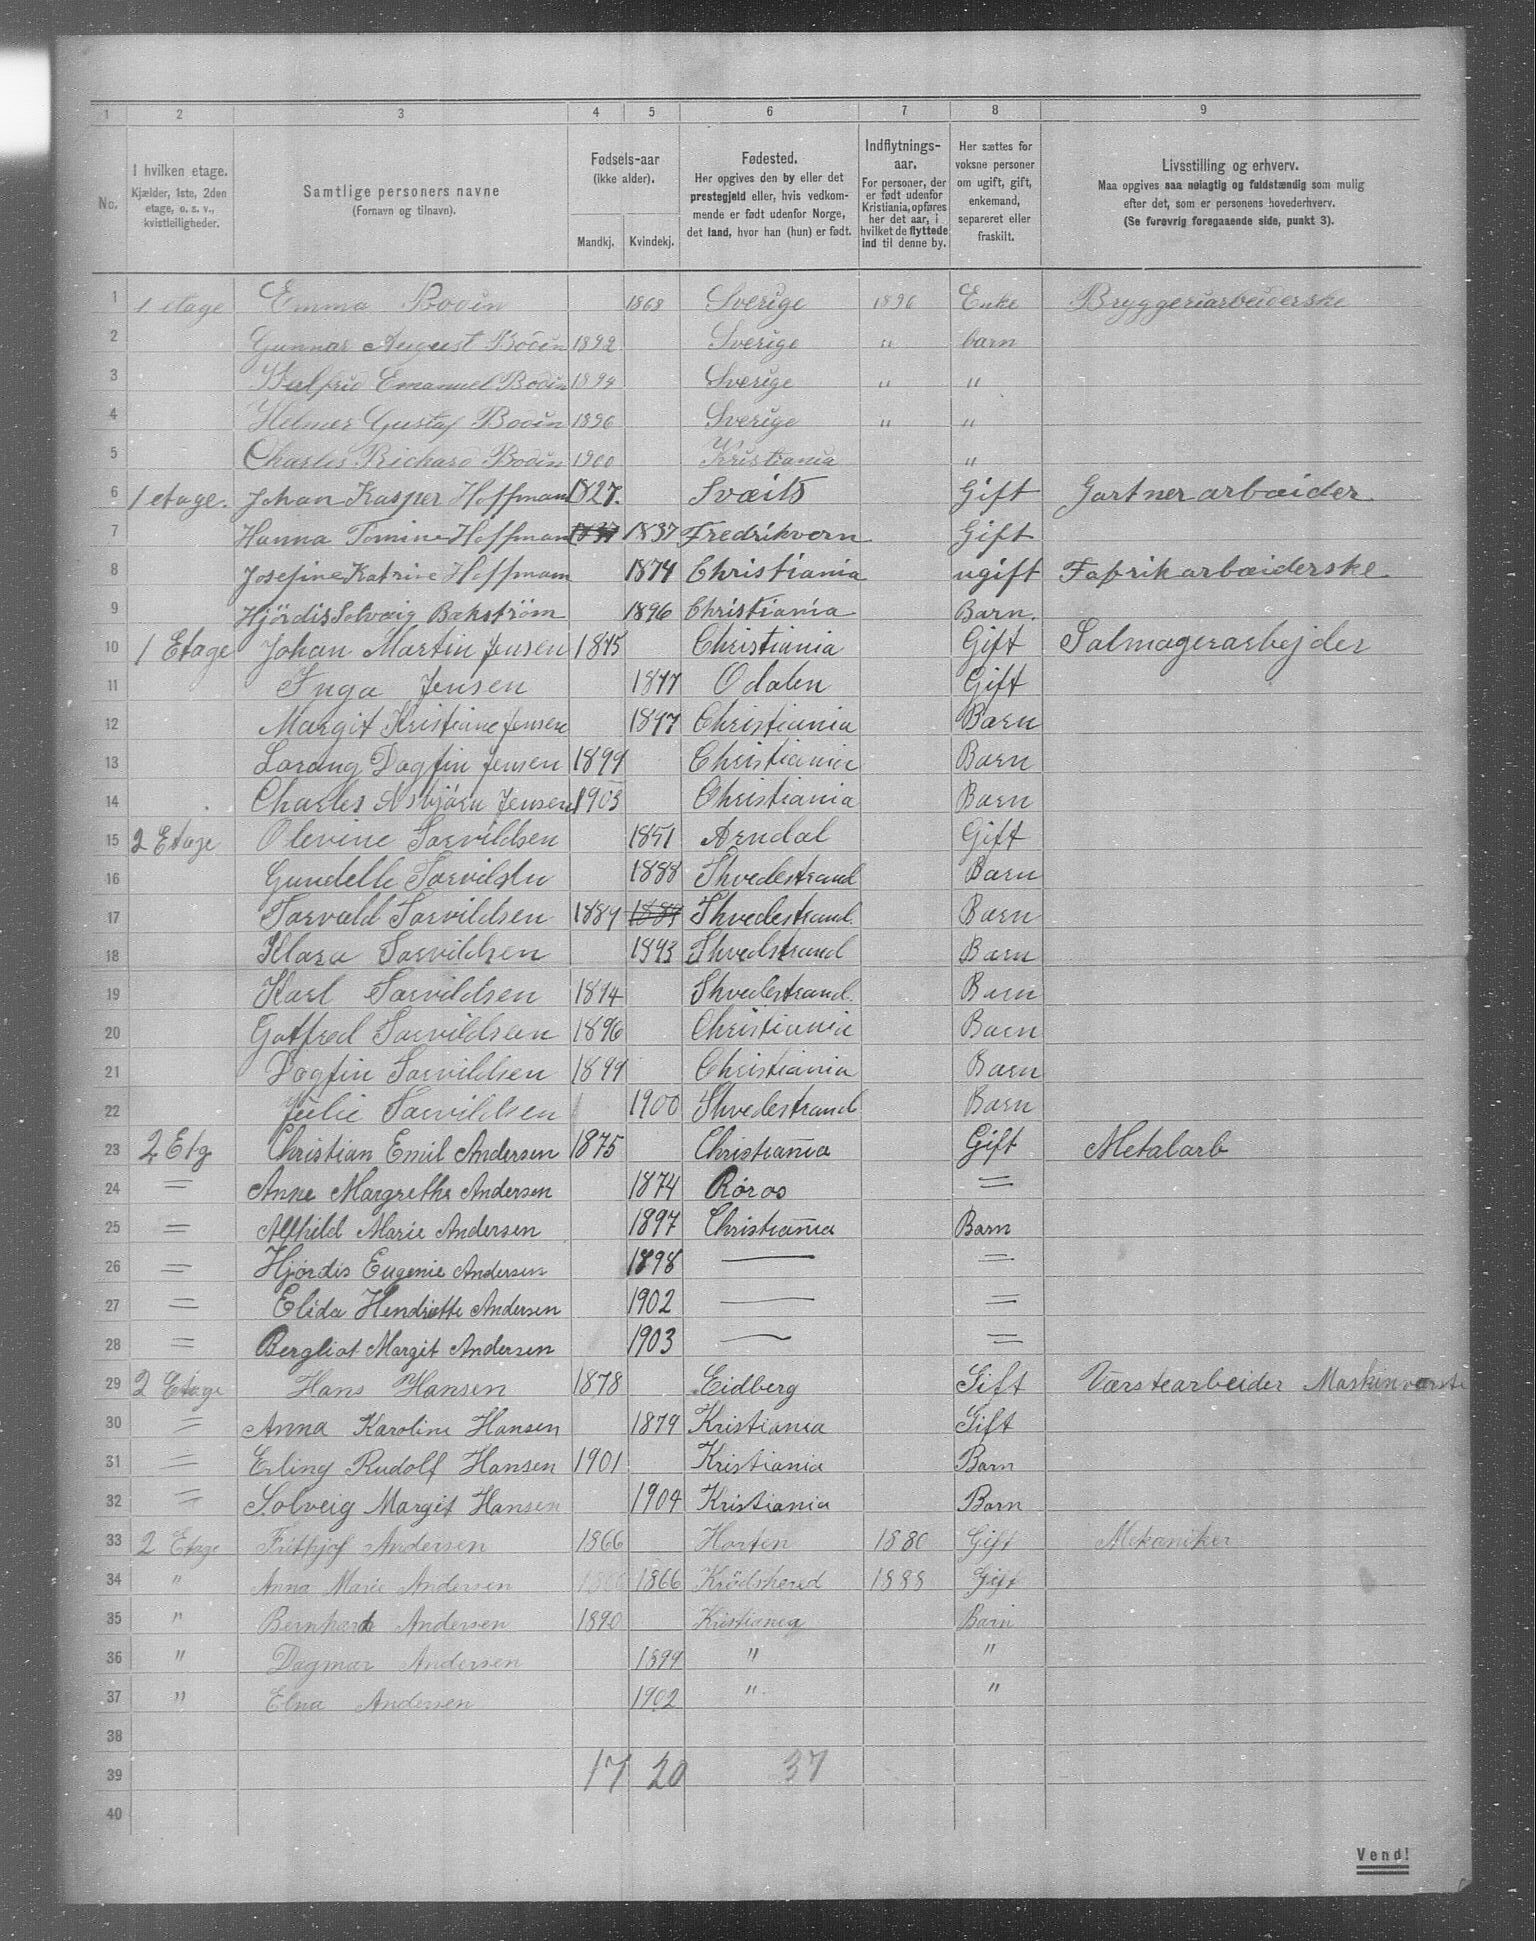 1 2 3 4 5 6 7 8 9
No.
I hvilken etage.
Kjælder, 1ste, 2den
etage, o. s. v.,
kvistleiligheder.
Samtlige personers navne
(Fornavn og tilnavn).
Fødsels-aar
(ikke alder).
Mandkj. Kvindekj.
Fødested.
Her opgives den by eller det
prestegjeld eller, hvis vedkom-
mende er født udenfor Norge,
det land, hvor han (hun) er født.
Indflytnings-
aar.
For personer, der
er født udenfor
Kristiania, opføres
her det aar, i
hvilket de flyttede
ind til denne by.
Her sættes for
voksne personer
om ugift, gift,
enkemand,
separeret eller
fraskilt.
Livsstilling og erhverv.
Maa opgives saa nøiagtig og fuldstændig som mulig
efter det, som er personens hovederhverv.
(Se forøvrig foregaaende side, punkt 3).
1 1 etage Emma Bodin 1868 Sverige 1896 Enke Bryggeriarbeiderske
2 Gunnar August Bodin 1892 Sverige " barn
3 Emanuel Bodin 1894 Sverige " "
4 Helmer Gustaf Bodin 1896 Sverige " "
5 Charles Richard Bodin 1900 Kristiania "
6 1 etage. Johan Kasper Hoffman 1827. Svæits Gift Gartnerarbæider
7 Hanna Tomine Hoffman 1837 1837 Fredrikvern Gift
8 Josefine Katrine Hoffmam 1874 Christiania ugift Fabrikarbæiderske
9 Hjørdis Solvæig Bakstrøm 1896 Christiania Barn.
10 1 Etage Johan Martin Jensen 1875 Christiania Gift Salmagerarbejder
11 Inga Jensen 1877 Odalen Gift
12 Margit Kristiane Jensen 1897 Christiania Barn
13 Lorang Dagfin Jensen 1899 Christiania Barn
14 Charles Asbjørn Jensen 1903 Christiania Barn
15 2 Etage Olevine Torvildsen 1851 Arndal Gift
16 Gundelle Torvildsen 1888 Thvedestrand Barn
17 Torvald Torvildsen 1889 1889 Thvedestrand. Barn
18 Klara Torvildsen 1893 Thvedstrand Barn
19 Karl Torvildsen 1894 Thvedestrand. Barn
20 Gotfred Torvildsen 1896 Christiania Barn
21 Dagfin Torvildsen 1899 Christiania Barn
22 Julie Torvildsen 1900 Thvedestrand Barn
23 2 Etg Christian Emil Andersen 1875 Christiania Gift Metalarb
24 = Anne Margrethe Andersen 1874 Røros =
25 = Alfhild Marie Andersen 1897 Christiania Barn
26 = Hjørdis Eugenie Andersen 1898 — =
27 = Elida Henriette Andersen 1902 — =
28 = Bergliot Margit Andersen 1903 — =
29 2 Etage Hans Hansen 1878 Eidberg Gift Værstearbeider
30 = Anna Karoline Hansen 1879 Kristiania Gift
31 = Erling Rudolf Hansen 1901 Kristiania Barn
32 = Solveig Margit Hansen 1904 Kristiania Barn
33 2 Etage Frithjof Andersen 1866 Horten 1880 Gift Mekaniker
34 " Anna Marie Andersen 1866 1866 Krødshered 1888 Gift
35 " Bernhard Andersen 1890 Kristiania Barn
36 " Dagmar Andersen 1899 " "
37 " Elna Andersen 1902 " "
38
39 17 20 37
40
Vend!